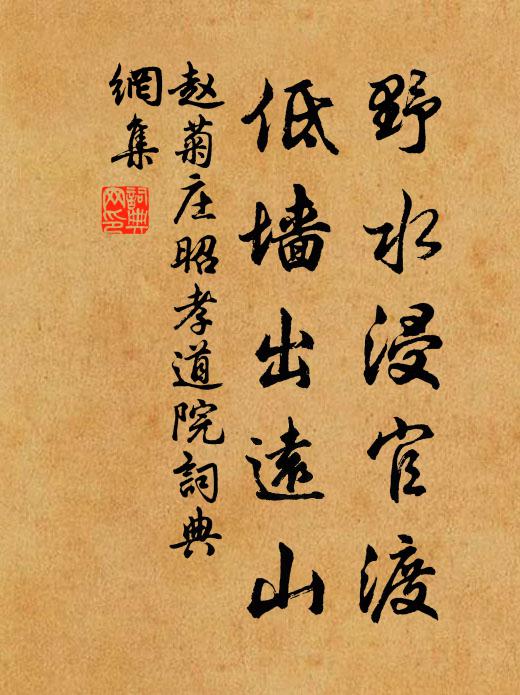 野水浸官渡
低墙出遠山
赵菊庄昭孝道院詞典
網集
詞典
网印